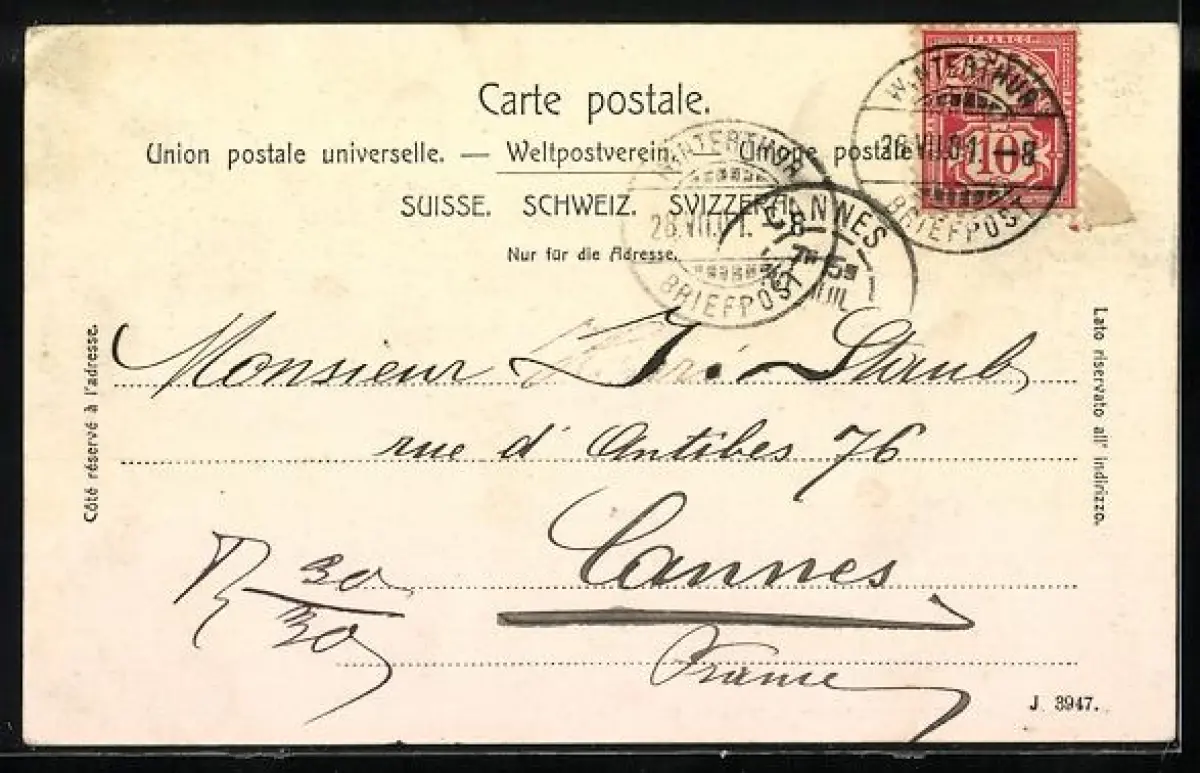 FRANCO
10
WINTERTHUR
26.VII.01.–8
BRIEFPOST
Carte postale.
Union postale universelle. — Weltpostverein. — Unione postale
SUISSE. SCHWEIZ. SVIZZERA.
Nur für die Adresse.
WINTERTHUR
26.VII.01. 8
BRIEFPOST
CANNES
Côté réservé à l'adresse.
Lato riservato all' indirizzo.
Monsieur Straub
rue d'Antibes 76
Cannes
France
30
30
J. 3947.